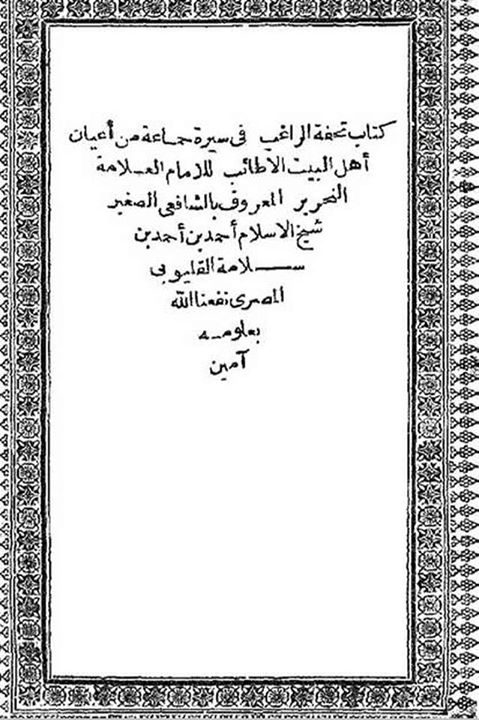 كتاب تحفة الراغب في سيرة جماعة من أعيان
أهل البيت الاطائب للامام العلامة
النحرير المعروف بالشافعى الصغير
شيخ الاسلام أحمد بن أحمد بن
سلامة القليوبى
المصرى نفعنا الله
بعلومه
آمين